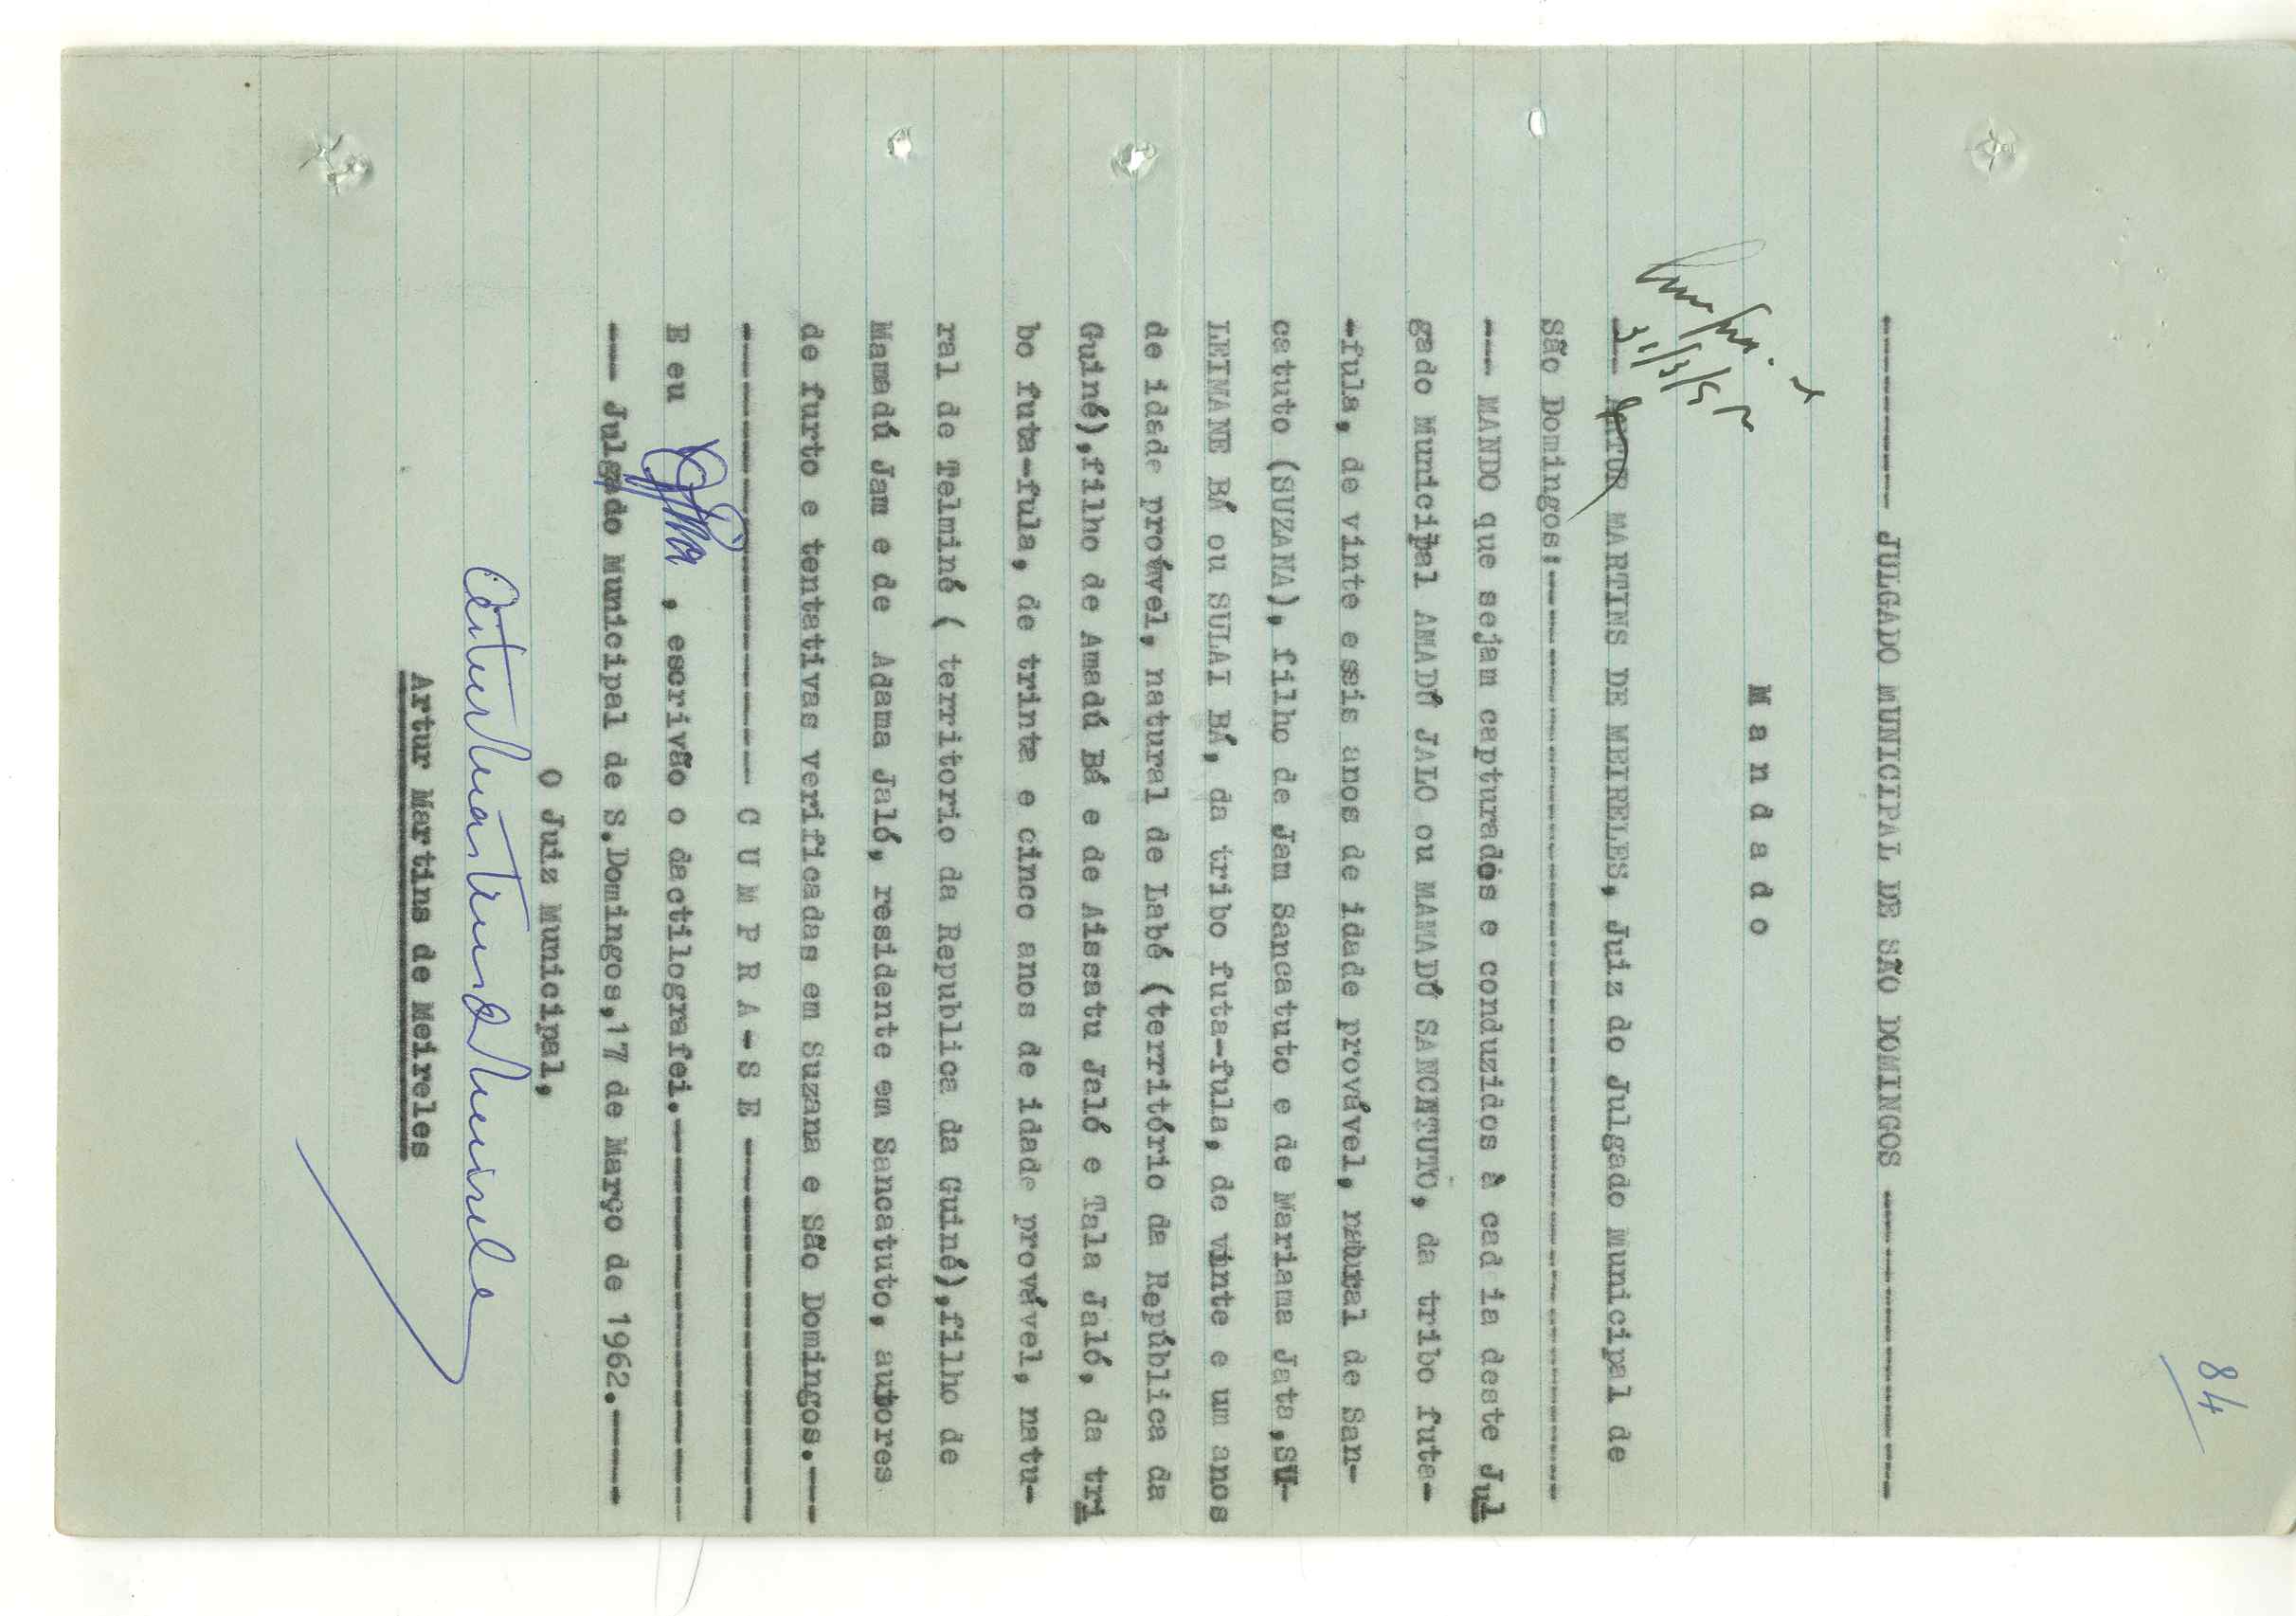 84
----------- JULGADO MUNICIPAL DE SÃO DOMINGOS -----------------
M a n d a d o
---- ARTUR MARTINS DE MEIRELES, Juiz do Julgado Municipal de
São Domingos:------------------------------------------------
--- MANDO que sejam capturados e conduzidos à cad ia deste Jul
gado Municipal AMADÚ JALO ou MAMADÚ SANCATUTO, da tribo futa-
-fula, de vinte e seis anos de idade provável, natural de San-
catuto (SUZANA), filho de Jam Sancatuto e de Mariama Jata,SU-
LEIMANE BÁ ou SULAI BÁ, da tribo futa-fula, de vinte e um anos
de idade provável, natural de Labé (território da República da
Guiné),filho de Amadú Bá e de Aissatu Jaló e Tala Jaló, da tri
bo futa-fula, de trinta e cinco anos de idade provável, natu-
ral de Telminé ( territorio da Republica da Guiné),filho de
Mamadú Jam e de Adama Jaló, residente em Sancatuto, autores
de furto e tentativas verificadas em Suzana e São Domingos.---
------------------------ C U M P R A - S E --------------------
E eu , escrivão o dactilografei.---------------------
---- Julgado Municipal de S.Domingos,17 de Março de 1962.-----
O Juiz Municipal,
Artur Martins de Meireles
Artur Martins de Meireles